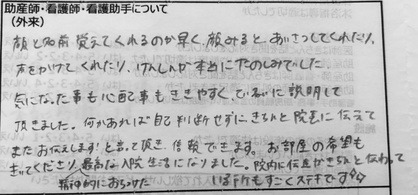 助産師・看護師・看護助手について
(外来)
顔と名前覚えてくれるのが早く、顔みると、あいさつしてくれたり、
声をかけてくれたり、けんしんが本当にたのしみでした
気になった事も心配事もききやすく、ていねいに説明して
頂きました。何かあれば自己判断せずに、きちんと院長に伝えて
またお伝えします!と言って頂き、信頼できます。お部屋の希望も
きいてくださり、最高な入院生活になりました。院内に伝達がきちんと伝わって
精神的におちつけた
いる所もすごくステキです